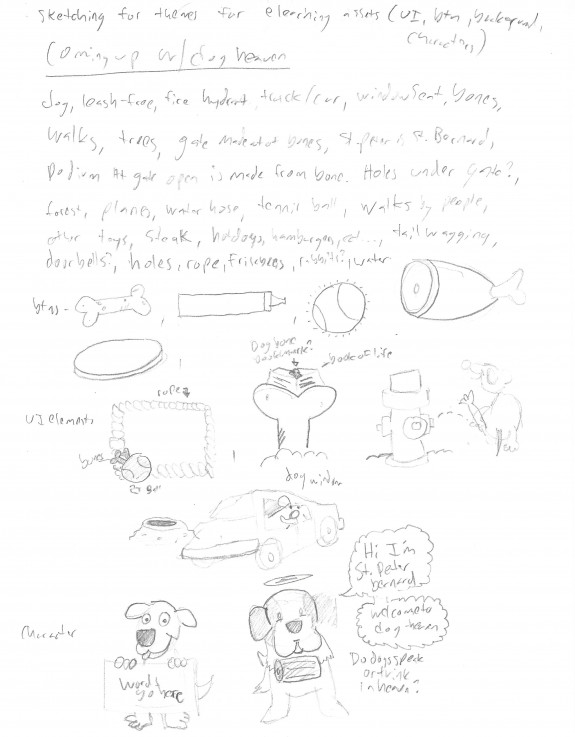 Sketching for themes for elearning assets (UI, btn, background,
characters)
Coming up w/ dog heaven
dog, leash-free, fire hydrant, truck/car, window seat, bones,
walks, trees, gate made out of bones, St. Peter is St. Bernard,
Podium At gate open is made from bone. Holes under gate?,
forest, planes, water hose, tennis ball, walks by people,
other toys, steak, hotdogs, hamburger, tail wagging,
doorbells?, holes, rope, Frisbees, rabbits?, water
btns -
Dog bone
bookmark?
book of life
rope
UI Elements
bones
dog window
Hi I'm
St. Peter
bernard
welcome to
dog heaven
Character
words
go here
Do dogs speak
or think
in heaven?